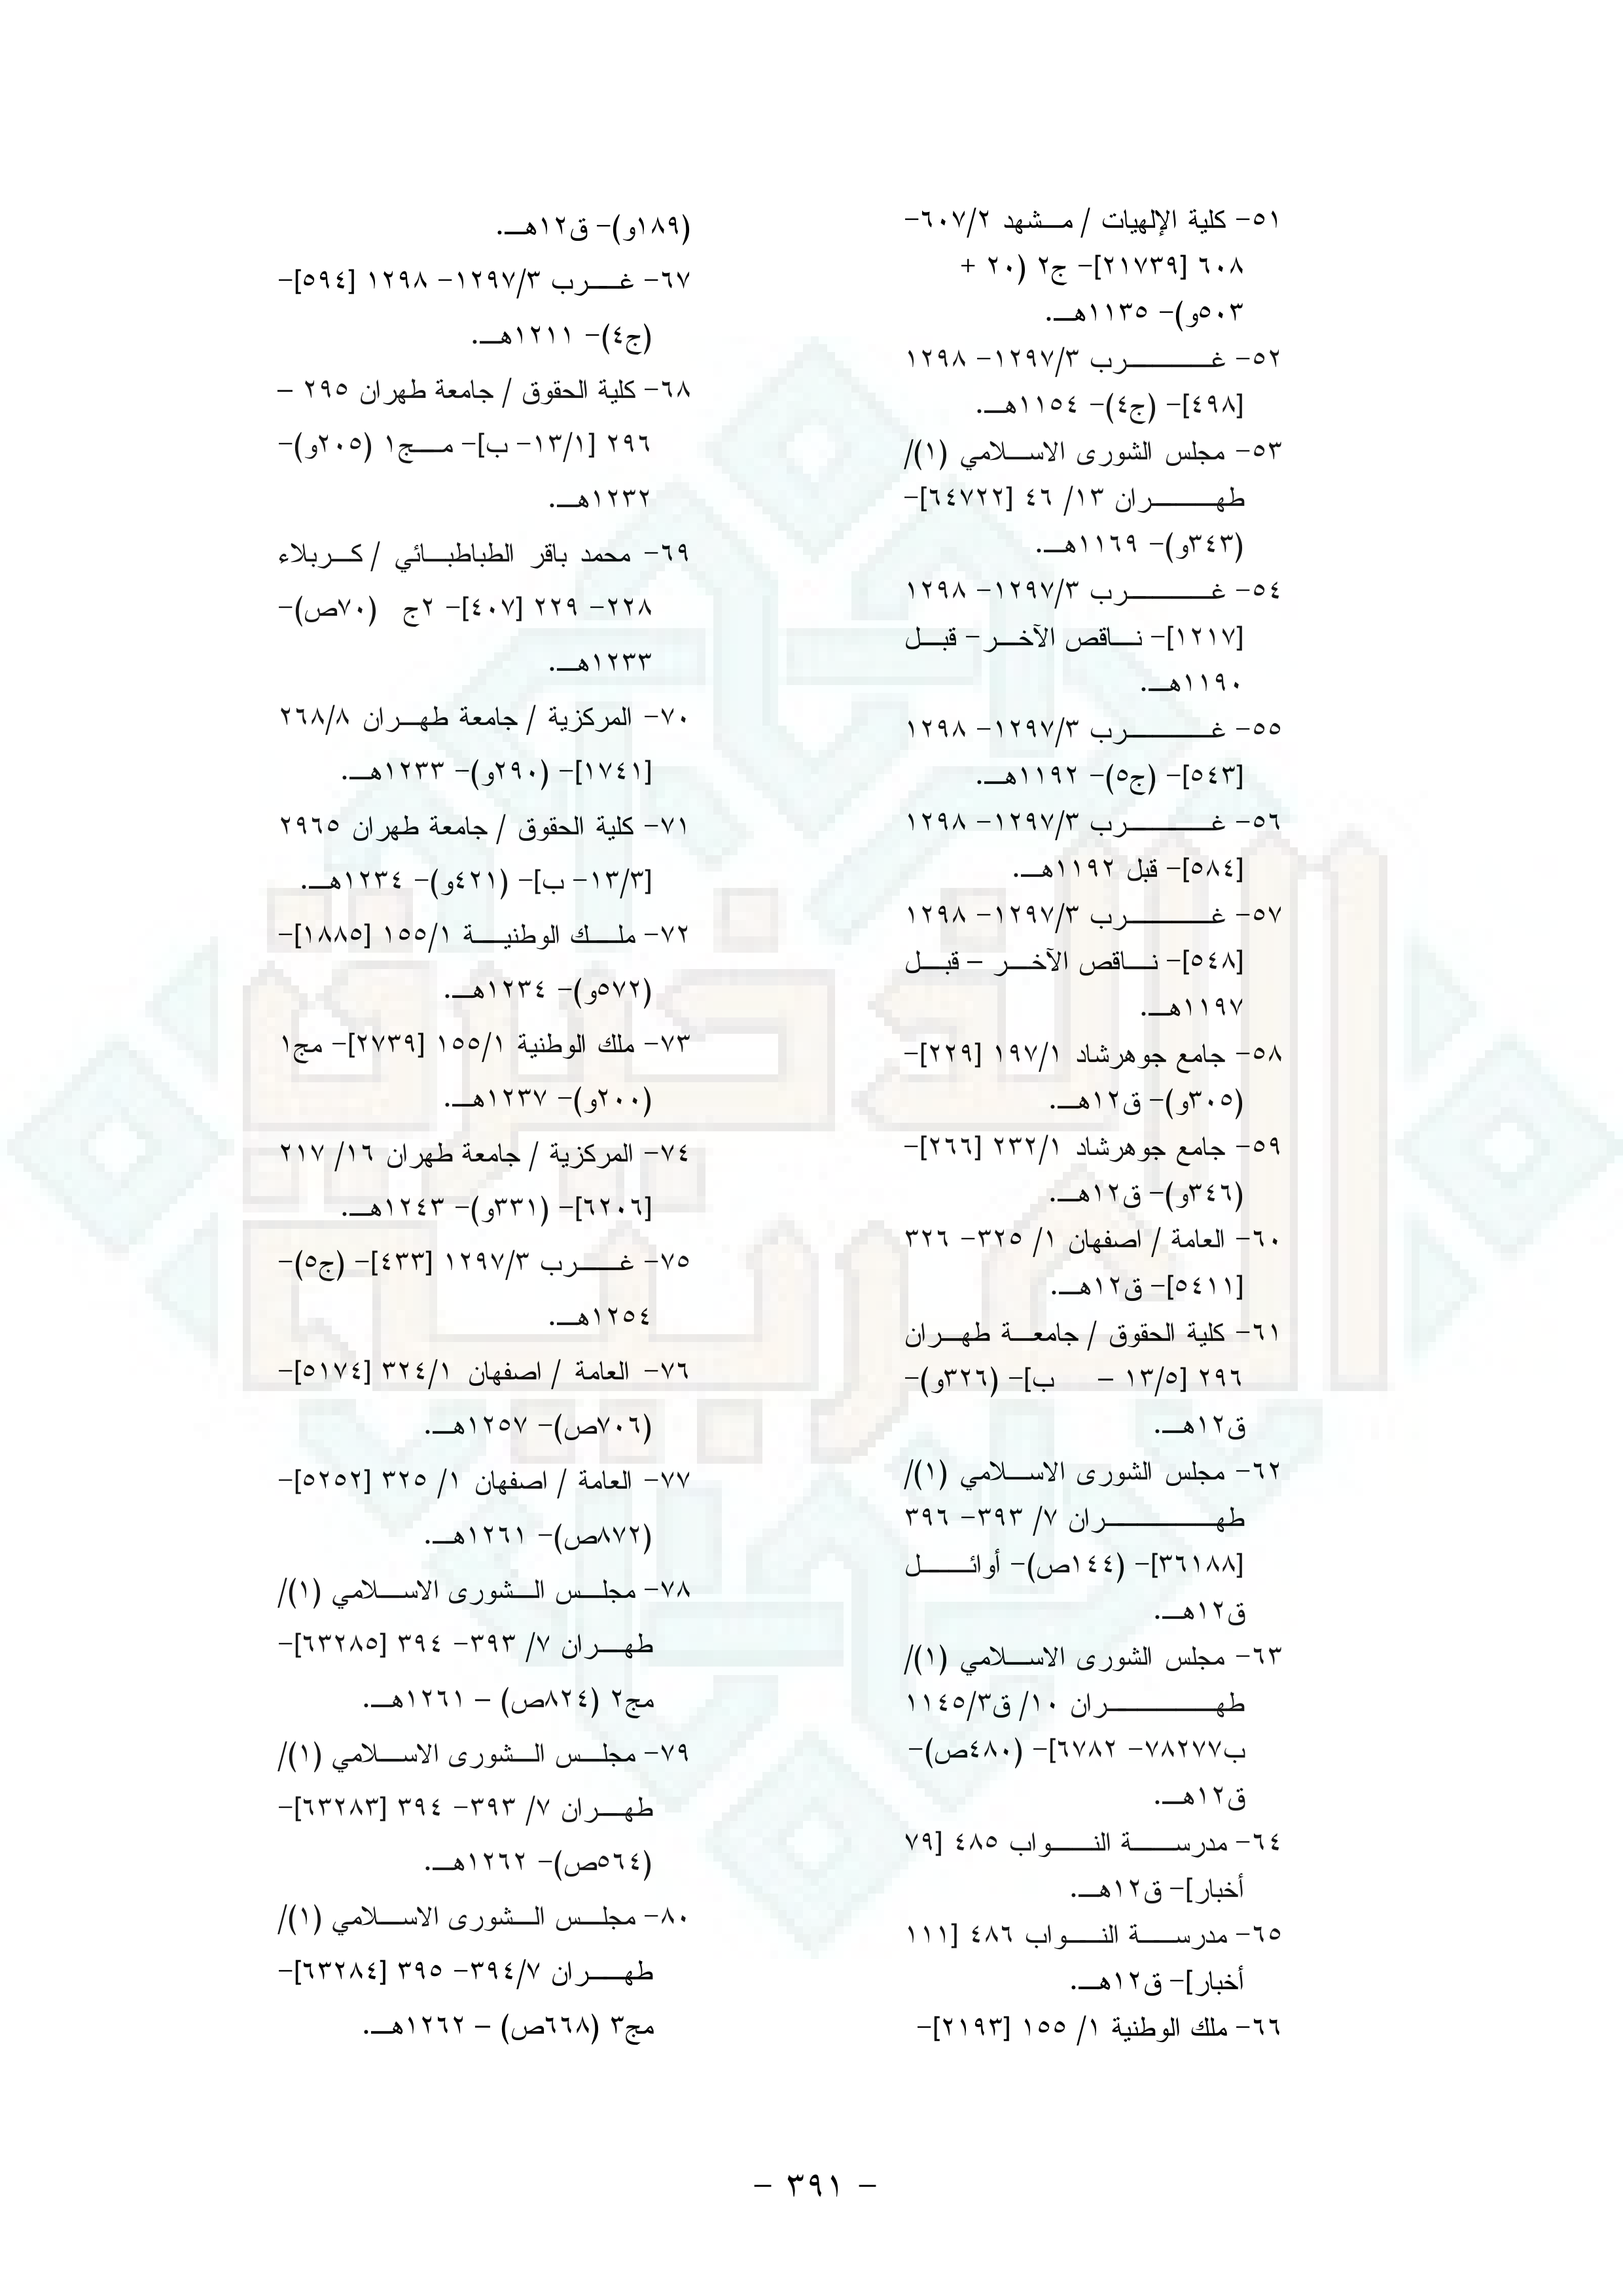 ٥١- كلية الإلهيات / مشهد ٦٠٧/٢-
٦٠٨ [٢١٧٣٩]- ج٢ (٢٠ +
٥٠٣و)- ١١٣٥هـ.
٥٢- غرب ١٢٩٧/٣- ١٢٩٨
[٤٩٨]- (ج٤)- ١١٥٤هـ.
٥٣- مجلس الشورى الاسلامي (١)/
طهران ١٣/ ٤٦ [٦٤٧٢٢]-
(٣٤٣و)- ١١٦٩هـ.
٥٤- غرب ١٢٩٧/٣- ١٢٩٨
[١٢١٧]- ناقص الآخر- قبل
١١٩٠هـ.
٥٥- غرب ١٢٩٧/٣- ١٢٩٨
[٥٤٣]- (ج٥)- ١١٩٢هـ.
٥٦- غرب ١٢٩٧/٣- ١٢٩٨
[٥٨٤]- قبل ١١٩٢هـ.
٥٧- غرب ١٢٩٧/٣- ١٢٩٨
[٥٤٨]- ناقص الآخر – قبل
١١٩٧هـ.
٥٨- جامع جوهرشاد ١٩٧/١ [٢٢٩]-
(٣٠٥و)- ق١٢هـ.
٥٩- جامع جوهرشاد ٢٣٢/١ [٢٦٦]-
(٣٤٦و)- ق١٢هـ.
٦٠- العامة / اصفهان ١/ ٣٢٥- ٣٢٦
[٥٤١١]- ق١٢هـ.
٦١- كلية الحقوق / جامعة طهران
٢٩٦ [١٣/٥ – ب]- (٣٢٦و)-
ق١٢هـ.
٦٢- مجلس الشورى الاسلامي (١)/
طهران ٧/ ٣٩٣- ٣٩٦
[٣٦١٨٨]- (١٤٤ص)- أوائل
ق١٢هـ.
٦٣- مجلس الشورى الاسلامي (١)/
طهران ١٠/ ق١١٤٥/٣
ب٧٨٢٧٧- ٦٧٨٢]- (٤٨٠ص)-
ق١٢هـ.
٦٤- مدرسة النواب ٤٨٥ [٧٩
أخبار]- ق١٢هـ.
٦٥- مدرسة النواب ٤٨٦ [١١١
أخبار]- ق١٢هـ.
٦٦- ملك الوطنية ١/ ١٥٥ [٢١٩٣]-
(١٨٩و)- ق١٢هـ.
٦٧- غرب ١٢٩٧/٣- ١٢٩٨ [٥٩٤]-
(ج٤)- ١٢١١هـ.
٦٨- كلية الحقوق / جامعة طهران ٢٩٥ –
٢٩٦ [١٣/١- ب]- مج١ (٢٠٥و)-
١٢٣٢هـ.
٦٩- محمد باقر الطباطبائي / كربلاء
٢٢٨- ٢٢٩ [٤٠٧]- ٢ج (٧٠ص)-
١٢٣٣هـ.
٧٠- المركزية / جامعة طهران ٢٦٨/٨
[١٧٤١]- (٢٩٠و)- ١٢٣٣هـ.
٧١- كلية الحقوق / جامعة طهران ٢٩٦٥
[١٣/٣- ب]- (٤٢١و)- ١٢٣٤هـ.
٧٢- ملك الوطنية ١٥٥/١ [١٨٨٥]-
(٥٧٢و)- ١٢٣٤هـ.
٧٣- ملك الوطنية ١٥٥/١ [٢٧٣٩]- مج١
(٢٠٠و)- ١٢٣٧هـ.
٧٤- المركزية / جامعة طهران ١٦/ ٢١٧
[٦٢٠٦]- (٣٣١و)- ١٢٤٣هـ.
٧٥- غرب ١٢٩٧/٣ [٤٣٣]- (ج٥)-
١٢٥٤هـ.
٧٦- العامة / اصفهان ٣٢٤/١ [٥١٧٤]-
(٧٠٦ص)- ١٢٥٧هـ.
٧٧- العامة / اصفهان ١/ ٣٢٥ [٥٢٥٢]-
(٨٧٢ص)- ١٢٦١هـ.
٧٨- مجلس الشورى الاسلامي (١)/
طهران ٧/ ٣٩٣- ٣٩٤ [٦٣٢٨٥]-
مج٢ (٨٢٤ص) – ١٢٦١هـ.
٧٩- مجلس الشورى الاسلامي (١)/
طهران ٧/ ٣٩٣- ٣٩٤ [٦٣٢٨٣]-
(٥٦٤ص)- ١٢٦٢هـ.
٨٠- مجلس الشورى الاسلامي (١)/
طهران ٣٩٤/٧- ٣٩٥ [٦٣٢٨٤]-
مج٣ (٦٦٨ص) – ١٢٦٢هـ.
– ٣٩١ –